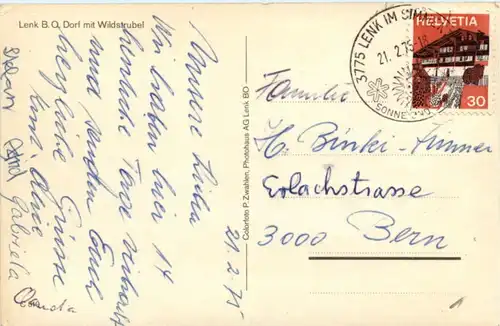 Lenk B. O. Dorf mit Wildstrubel
21. 2. 75
Unsere Lieben
Wir haben hier 14
herrliche Tage verbracht
und senden Euch
herzliche Grüsse
Gabriela
Colorfoto P. Zwahlen, Photohaus AG Lenk BO
3775 LENK IM SIMMENTAL
21. 2. 75
HELVETIA
30
Familie
H. Bürki-
Erlachstrasse
3000 Bern